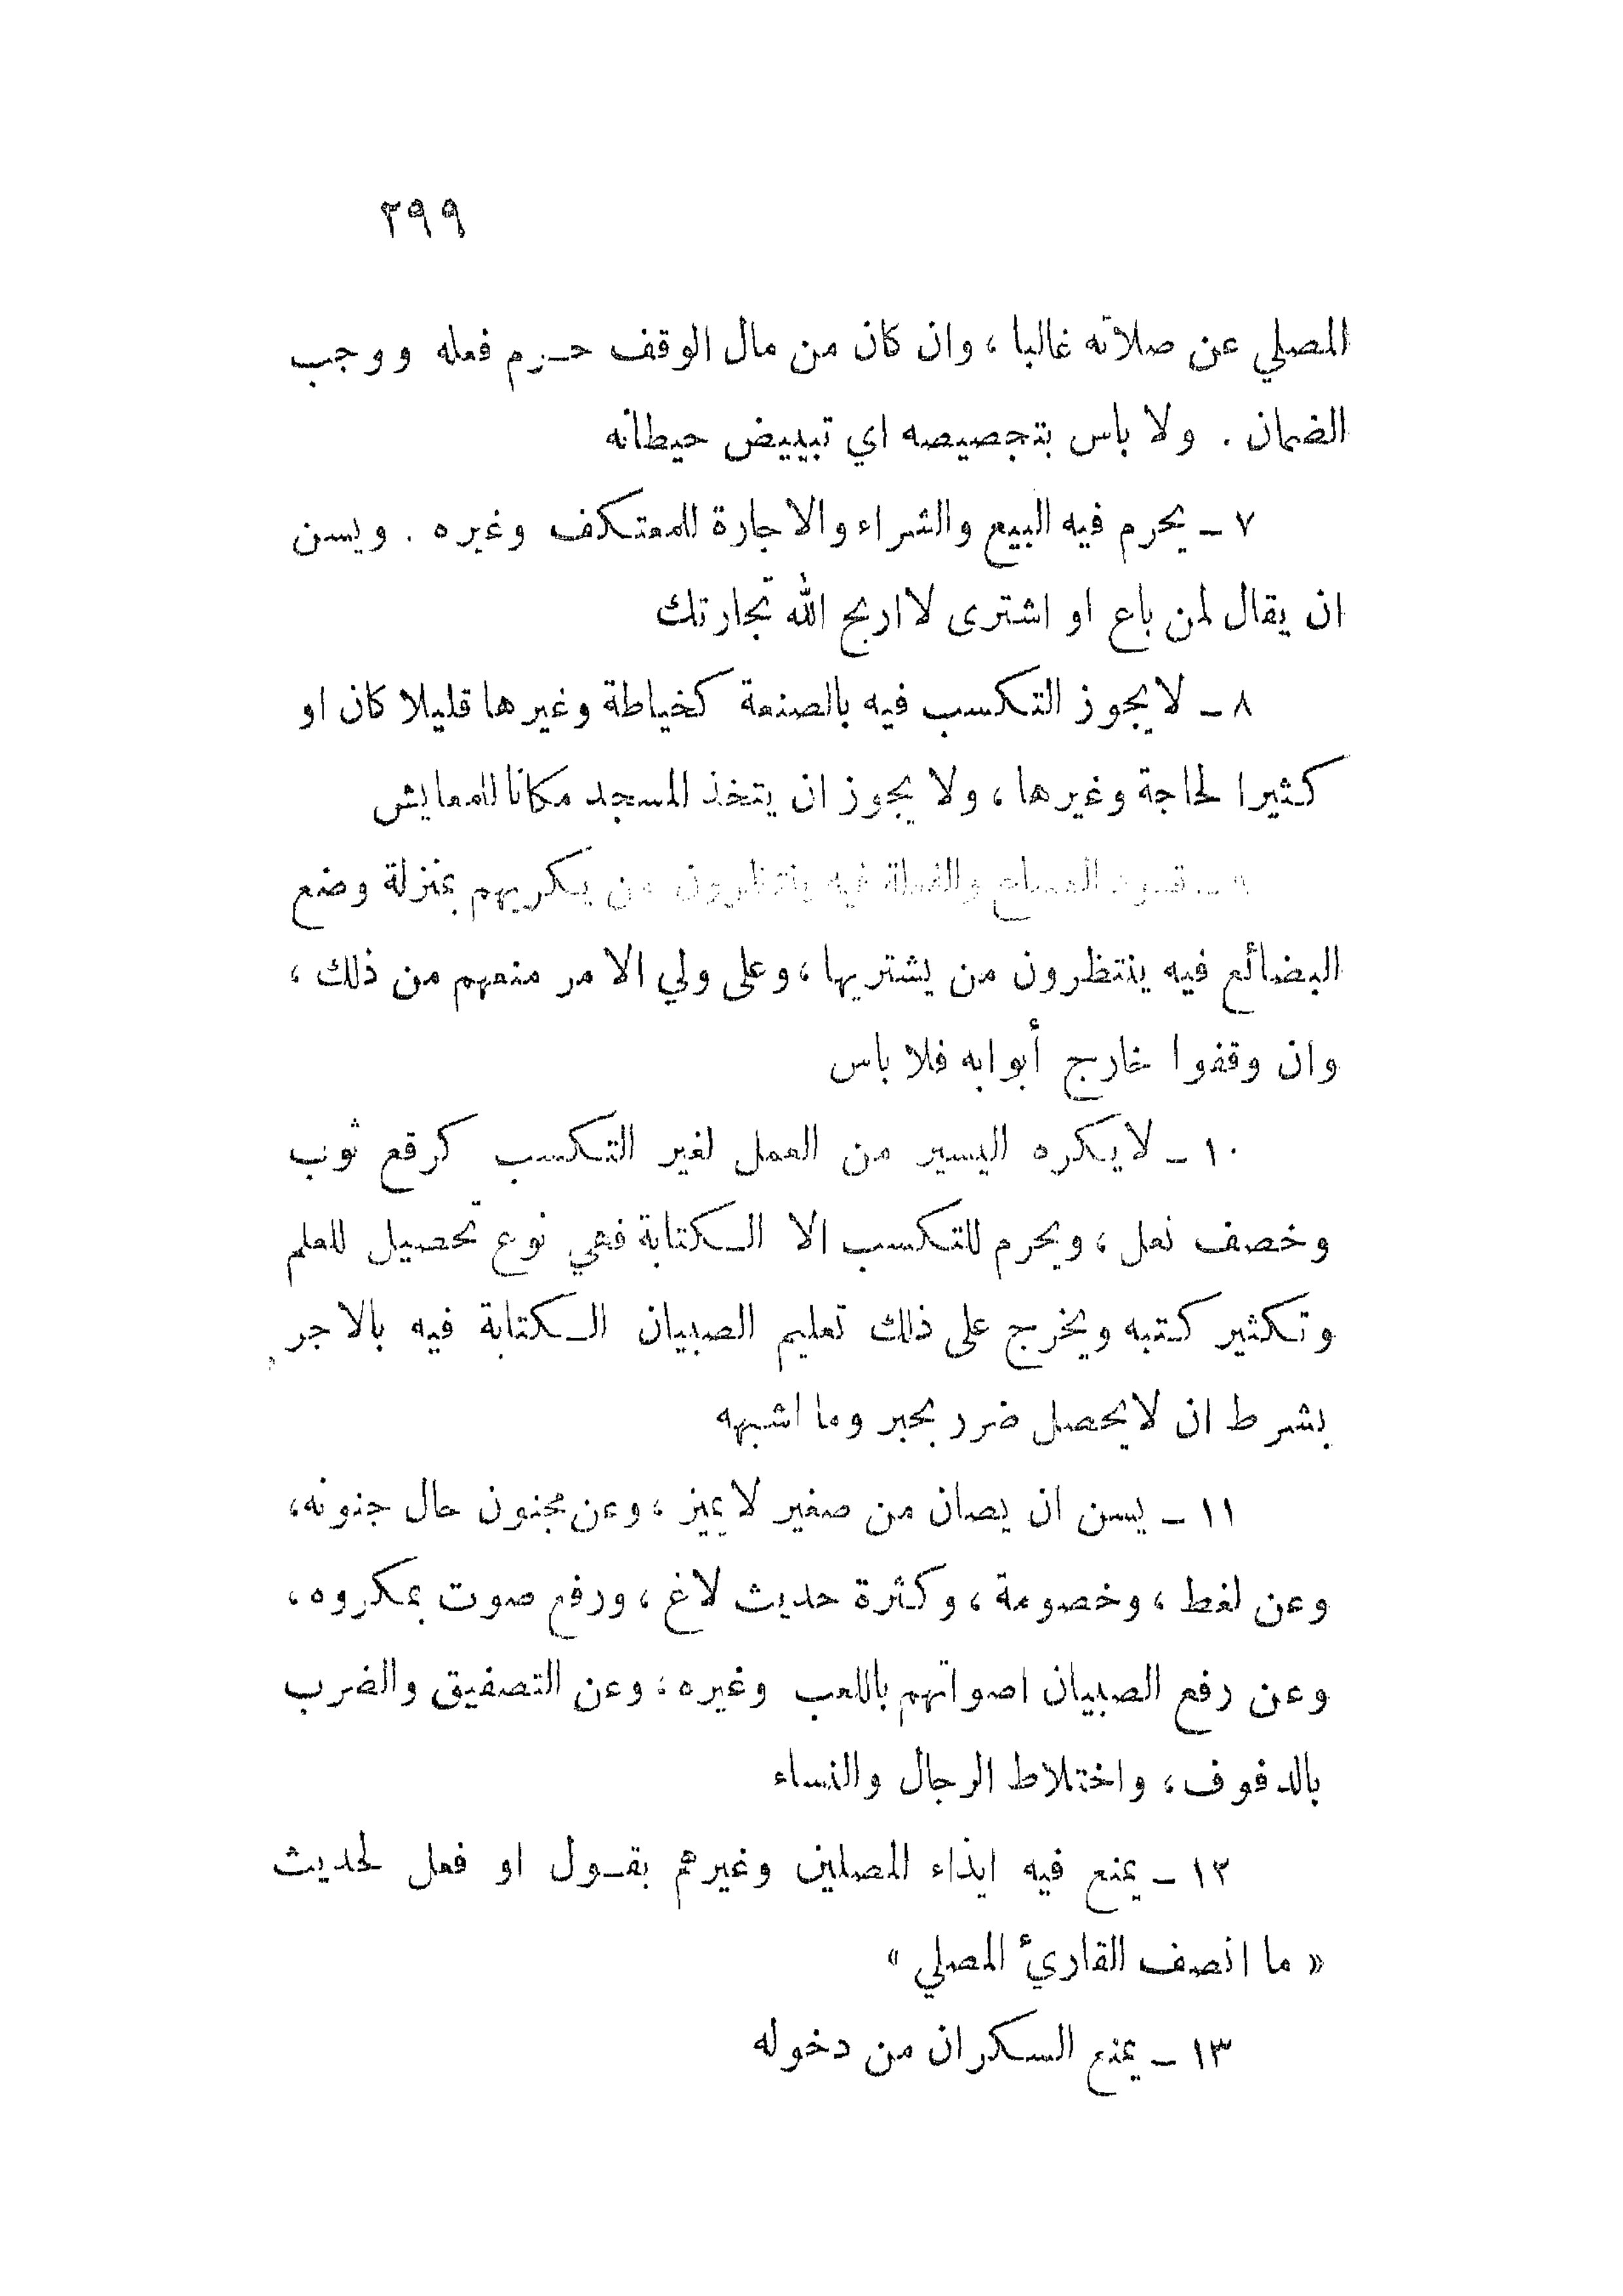 ٢٩٩
المصلي عن صلاته غالبا ، وان كان من مال الوقف حـرم فعله ووجب
الضمان . ولا باس بتجصيصه اي تبييض حيطانه
٧ ـ يحرم فيه البيع والشراء والاجارة للمعتكف وغيره . ويسن
ان يقال لمن باع او اشترى لا اربح الله تجارتك
٨ ـ لا يجوز التكسب فيه بالصنعة كخياطة وغيرها قليلا كان او
كثيرا لحاجة وغيرها ، ولا يجوز ان يتخذ المسجد مكانا للمعايش
والفعلة فيه ينتظرون من يكريهم بمنزلة وضع
البضائع فيه ينتظرون من يشتريها ، وعلى ولي الامر منعهم من ذلك ،
وان وقفوا خارج أبوابه فلا باس
١٠ ـ لا يكره اليسير من العمل لغير التكسب كرقع ثوب
وخصف نعل ، ويحرم للتكسب الا الكتابة فهي نوع تحصيل للعلم
وتكثير كتبه ويخرج على ذلك تعليم الصبيان الكتابة فيه بالاجر
بشرط ان لا يحصل ضرر بحبر وما اشبهه
١١ ـ يسن ان يصان من صغير لا يميز ، وعن مجنون حال جنونه ،
وعن لغط ، وخصومة ، وكثرة حديث لاغ ، ورفع صوت بمكروه ،
وعن رفع الصبيان اصواتهم باللعب وغيره ، وعن التصفيق والضرب
بالدفوف ، واختلاط الرجال والنساء
١٢ ـ يمنع فيه ايذاء المصلين وغيرهم بقـول او فعل لحديث
« ما انصف القارئ المصلي »
١٣ ـ يمنع السكران من دخوله